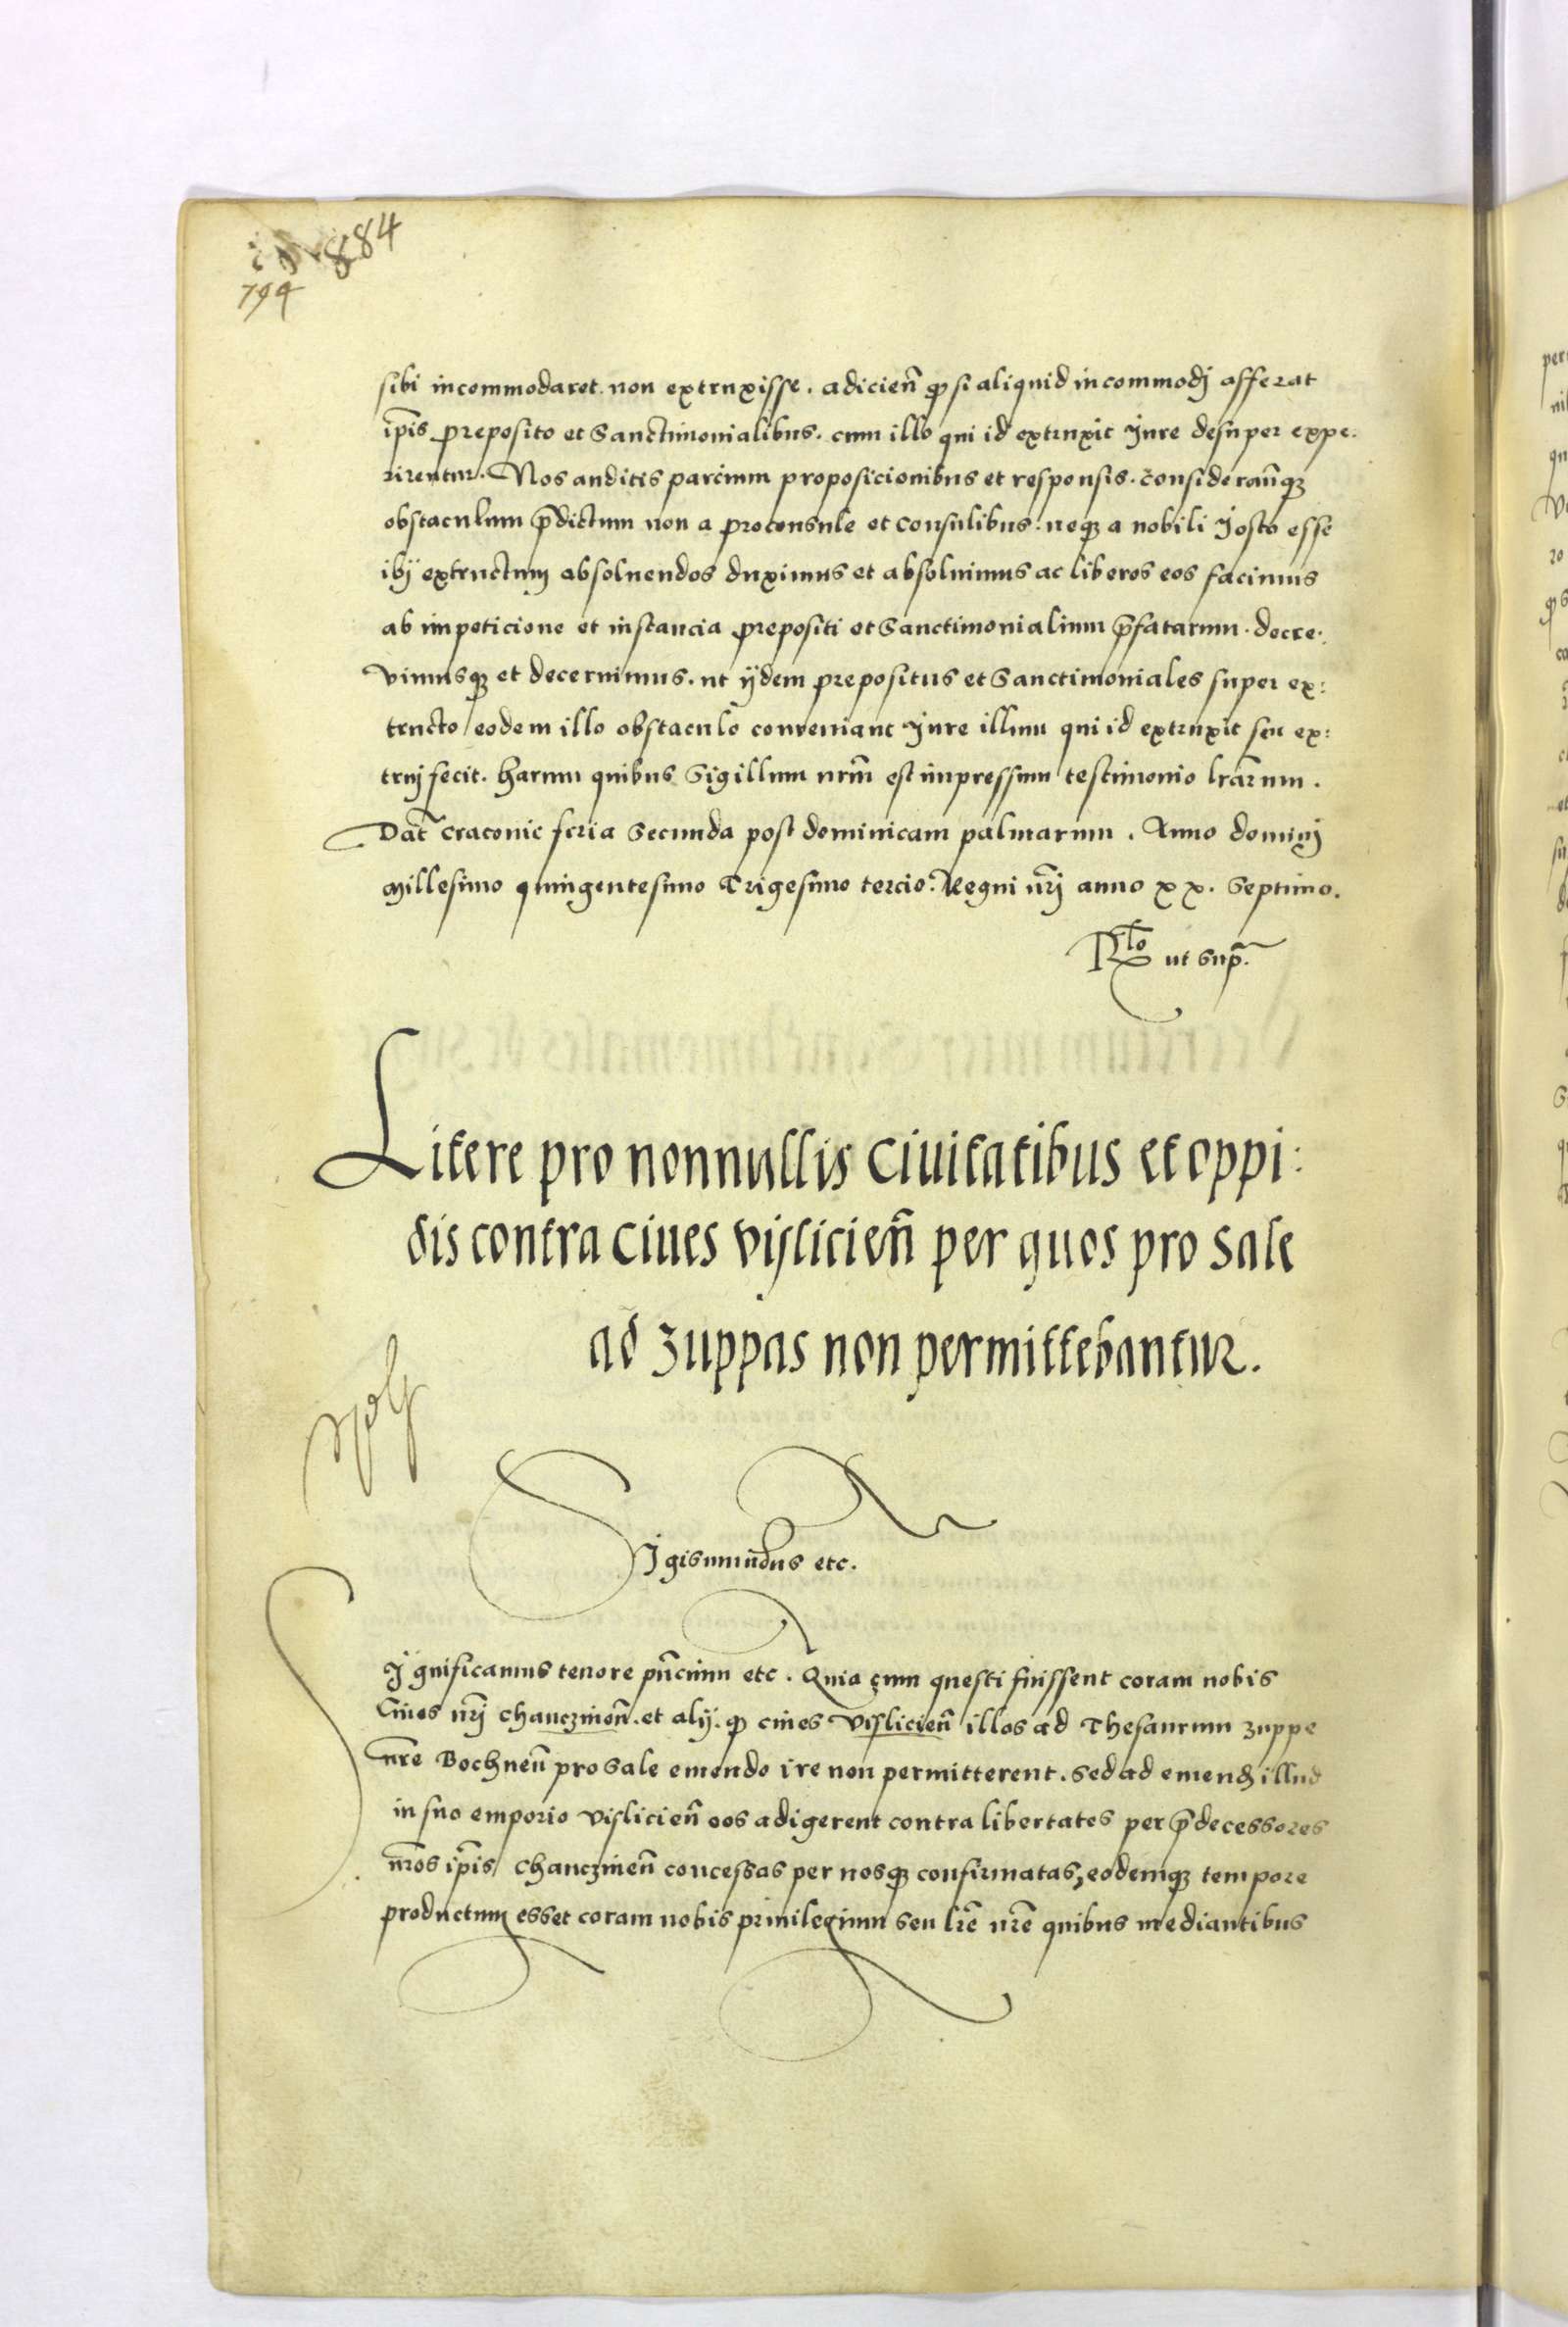 884
794
sibi incommodaret. non extruxisse. adicień ꝙ si aliquid incommodj afferat
ip̄is preposito et Sanctimonialibus. cum illo qui id extruxit Jure desuper expe.
rirentur. Nos auditis parcium proposicionibus et responsis. considerań̄qꝫ
obstaculum p̄dictum non a proconsule et consulibus. neqꝫ a nobili Josto esse
ibj extructum absoluendos duximus et absoluimus ac liberos eos facimus
ab impeticione et instancia prepositi et Sanctimonialium p̄fatarum. decre.
vimusqꝫ et decernimus. ut ijdem prepositus et Sanctimoniales super ex:
tructo eodem illo obstaculo conveniant Jure illum qui id extruxit seu ex:
truj fecit. harum quibus Sigillum nrm̄ est impressum testimonio lrār̄um.
Dat̄ Cracovie feria Secunda post dominicam palmarum. Anno dominj
Millesimo quingentesimo Trigesimo tercio. Regni nr̄j anno xx. Septimo.
Rᵗᵒ ut Sup̄.
Litere pro nonnullis Ciuitatibus et oppi:
dis contra Ciues vislicień per quos pro Sale
ad zuppas non permittebantur.
Sigismundus etc.
Significamus tenore pn̄cium etc. Quia cum questi fuissent coram nobis
Ciues nr̄j chanczinen̄. et alij. ꝙ ciues Vislicien̄ illos ad Thesaurum zuppe
nr̄e Bochnen̄ pro Sale emendo ire non permitterent. Sed ad emendū illud
in suo emporio vislicien̄ eos adigerent contra libertates per p̄decessores
nr̄os ip̄is chanczinen̄ concessas per nosqꝫ confirmatas, eodemqꝫ tempore
productum esset coram nobis priuilegium seu lrē nrē quibus mediantibus